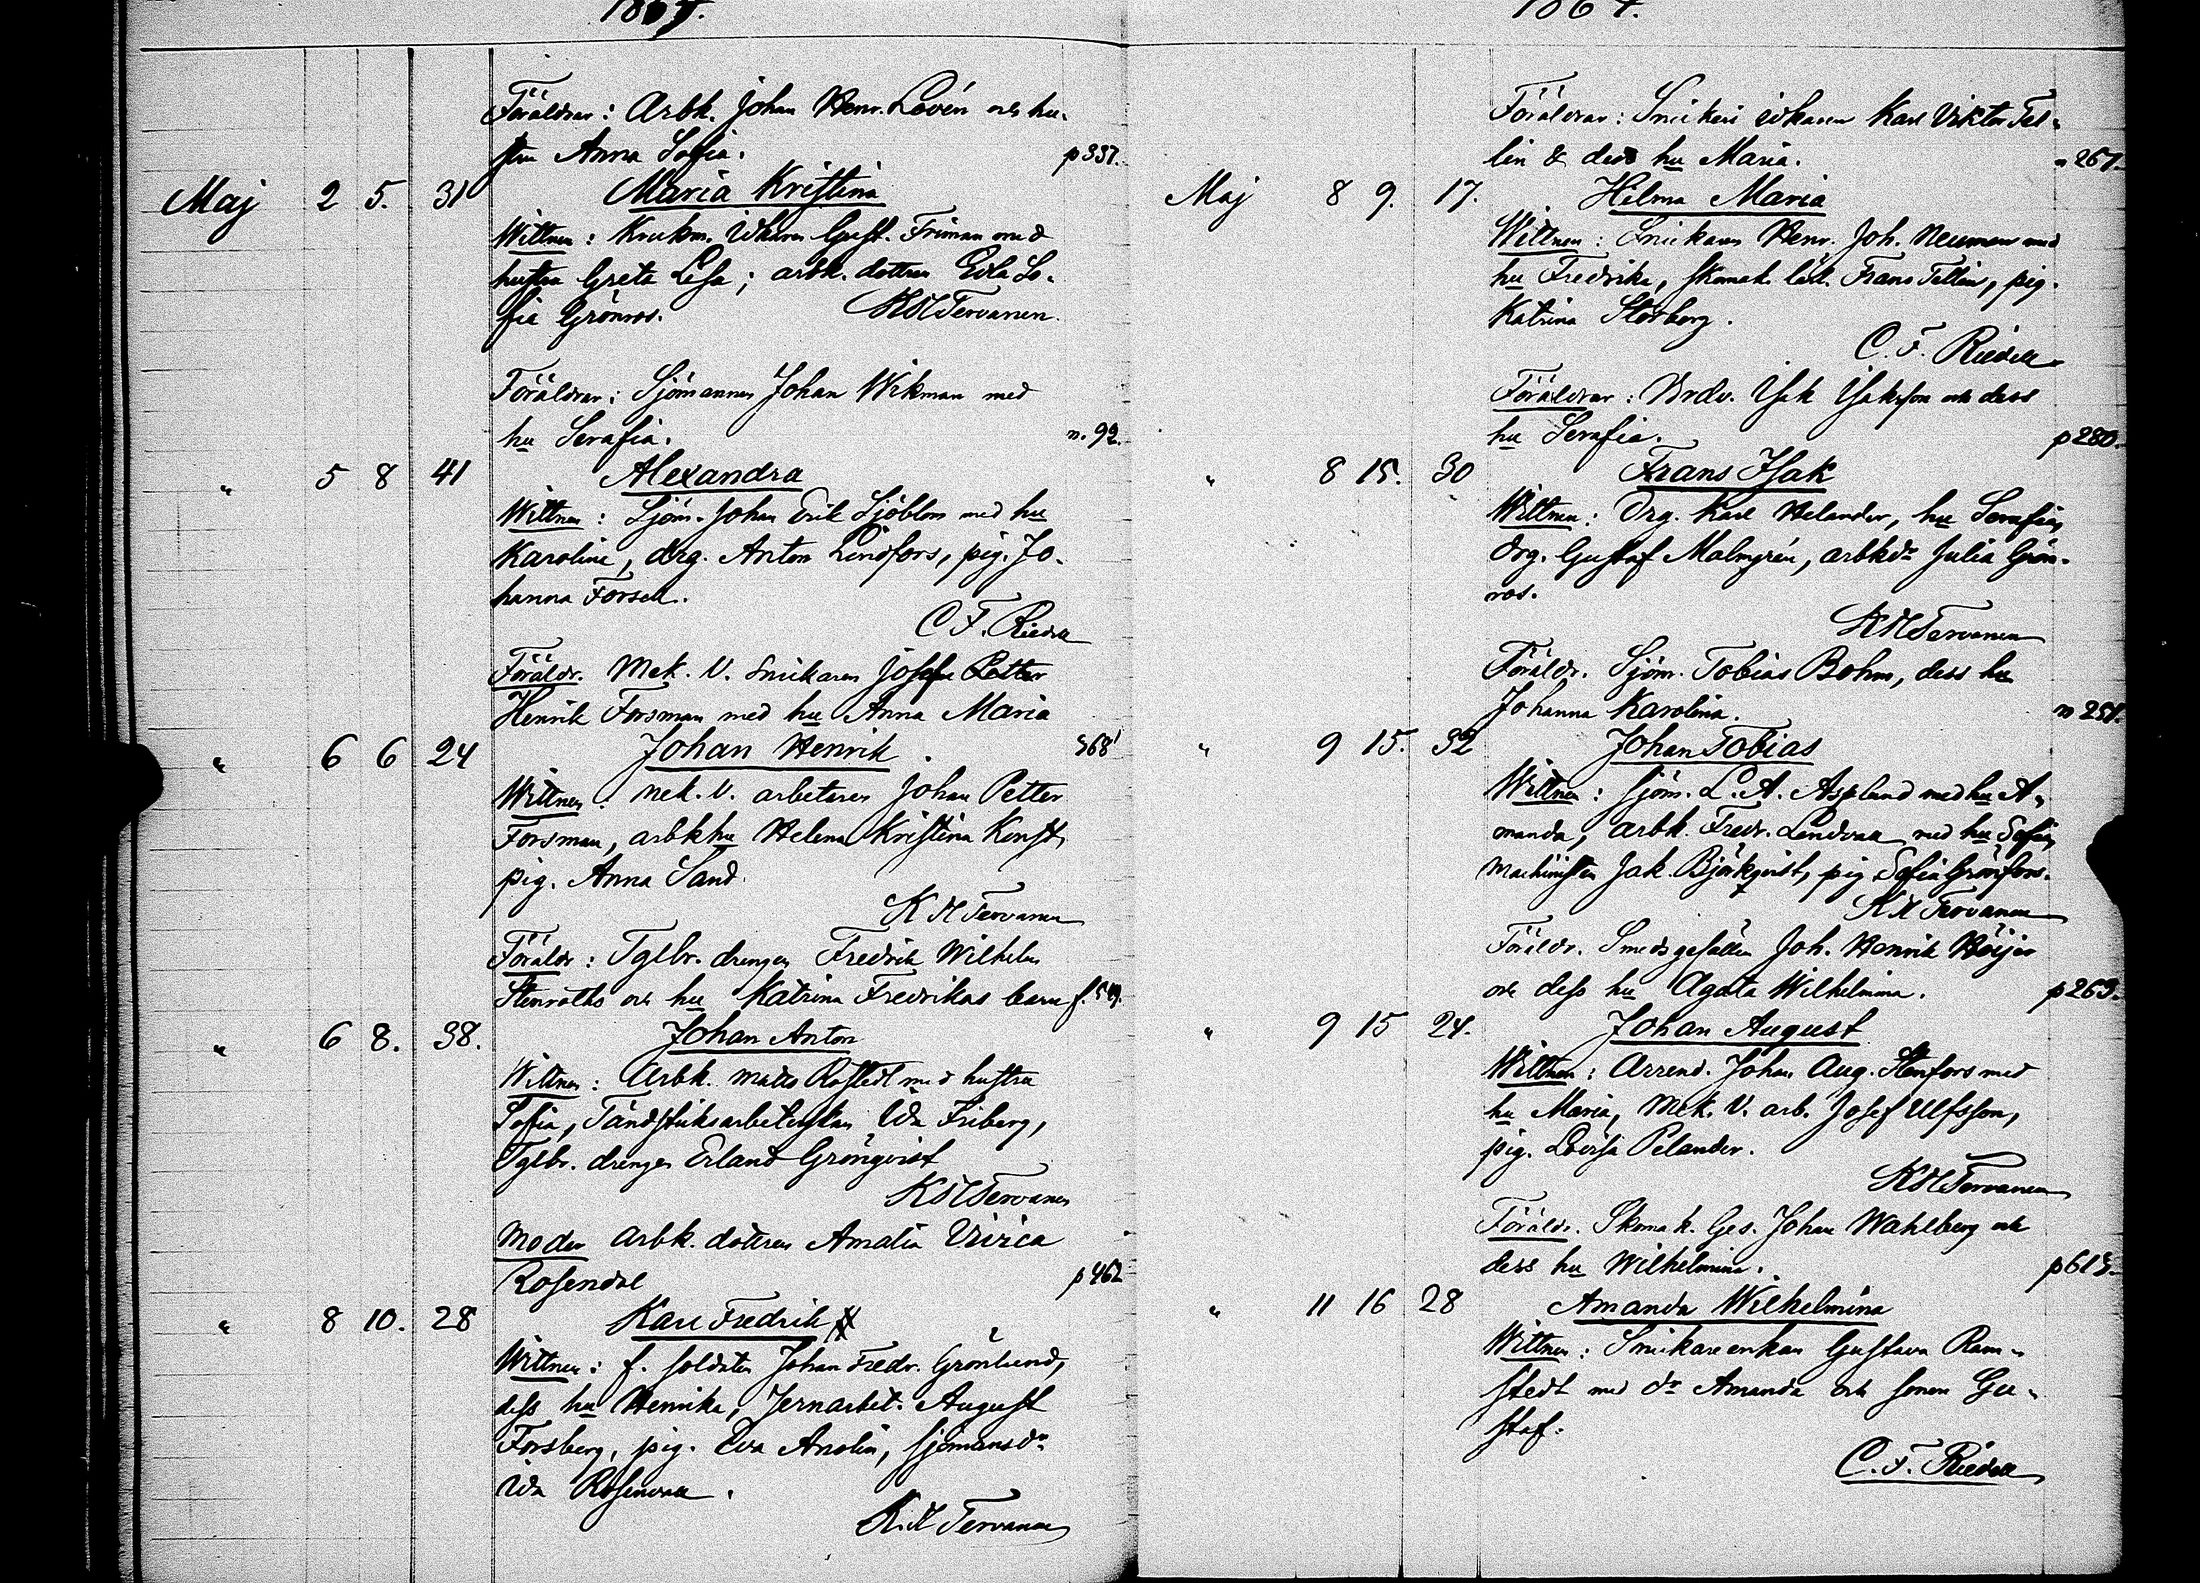 1864.
Föräldrar: Arbk. Johan Henr. Lovén och hu-
stru Anna Sofia. p 337.
Maj 2 5. 31 Maria Kristina
Wittnen: Krukm. Idkaren Gust. Friman med
hustru Greta Lisa; arbk. dottren Eva So-
fia Grönros. K H Tervanen.
Föräldrar: Sjömannen Johan Wikman med
hu Serafia. n. 92
" 5 8 41 Alexandra
Wittnen: Sjöm. Johan Erik Sjöblom med hu
Karolina, drg. Anton Lindfors, pig. Jo-
hanna Forsell.
C F. Riedell
Föräldr. Mek. V. Snikaren Josef Petter
Henrik Forsman med hu Anna Maria
" 6 6 24 Johan Henrik 568
Wittnen: Mek. V. arbetaren Johan Petter
Forsman, arbkhu Helena Kristina Konst,
pig. Anna Sand.
K H Tervanen
Föräldr: Tglbr. drengen Fredrik Wilhelm
Stenroths och hu Katrina Fredrikas barn
" 6 8. 38. Johan Anton
Wittnen: Arbk. Matts Rostedt med hustru
Sofia, Tändsticksarbeterskan Ida Friberg,
Tglbr. drengen Erland Grönqvist
K H Tervanen
Moder Arbk. dottren Amalia Vivica
Rosendal p 462
" 8 10. 28 Karl Fredrik
Wittnen: f. soldaten Johan Fredr. Grönlund,
dess hu Henrika, Jernarbet. August
Forsberg, pig. Eva Anolin, sjömansdr
Ida Rosenvall.
K. H Tervanen
1864.
Föräldrar: Snickeri idkaren Karl Viktor Tel-
lin & dess hu Maria. n 267.
Maj 8 9. 17. Hilma Maria
Wittnen: Snickaren Henr. Joh. Neuman med
hu Fredrika, skomak. lärl. Frans Tellin, pig.
Katrina Storberg.
C. F. Riedell
Föräldrar: Brdv. Isak Isaksson och dess
hu Serafia. p 280.
" 8 15. 30 Frans Isak
Wittnen: Drg. Karl Helander, hu Serafia,
drg. Gustaf Malmgrén, arbkdr Julia Grön-
ros.
K H Tervanen
Föräldr. Sjöm. Tobias Bohm, dess hu
Johanna Karolina. n 251.
" 9 15. 32 Johan Tobias
Wittnen: Sjöm. L. A. Asplund med hu A-
manda, arbk. Fredr. Lindvall med hu Sofia,
Machinisten Jak. Björkqvist, pig Sofia Grönfors.
K H Tervanen
Föräldr. Smedsgesällen Joh. Henrik Höijer
och dess hu Agata Wilhelmina. p 263.
" 9 15 24. Johan August
Wittnen: Arrend. Johan Aug. Stenfors med
hu Maria, Mek. V. arb. Josef Ulfsson,
pig. Lovisa Pelander.
K H Tervanen
Föräldr. Skomak. Ges. Johan Wahlberg och
dess hu Wilhelmina. p 615.
" 11 16 28 Amanda Wilhelmina
Wittnen: Snickareenkan Gustava Ram-
stedt med dr Amanda och sonen Gu-
staf.
C. F. Riedell